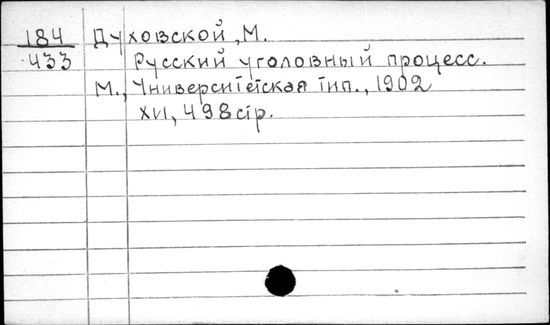 184 Духовской, М.
433 Русский уголовный процесс.
М., Университетская тип., 1902
XVI, 498 стр.